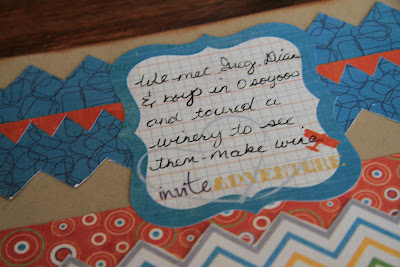 We met Greg, Dian
& boys in Osoyoos
and toured a
winery to see
them make wine
invite ADVENTURE